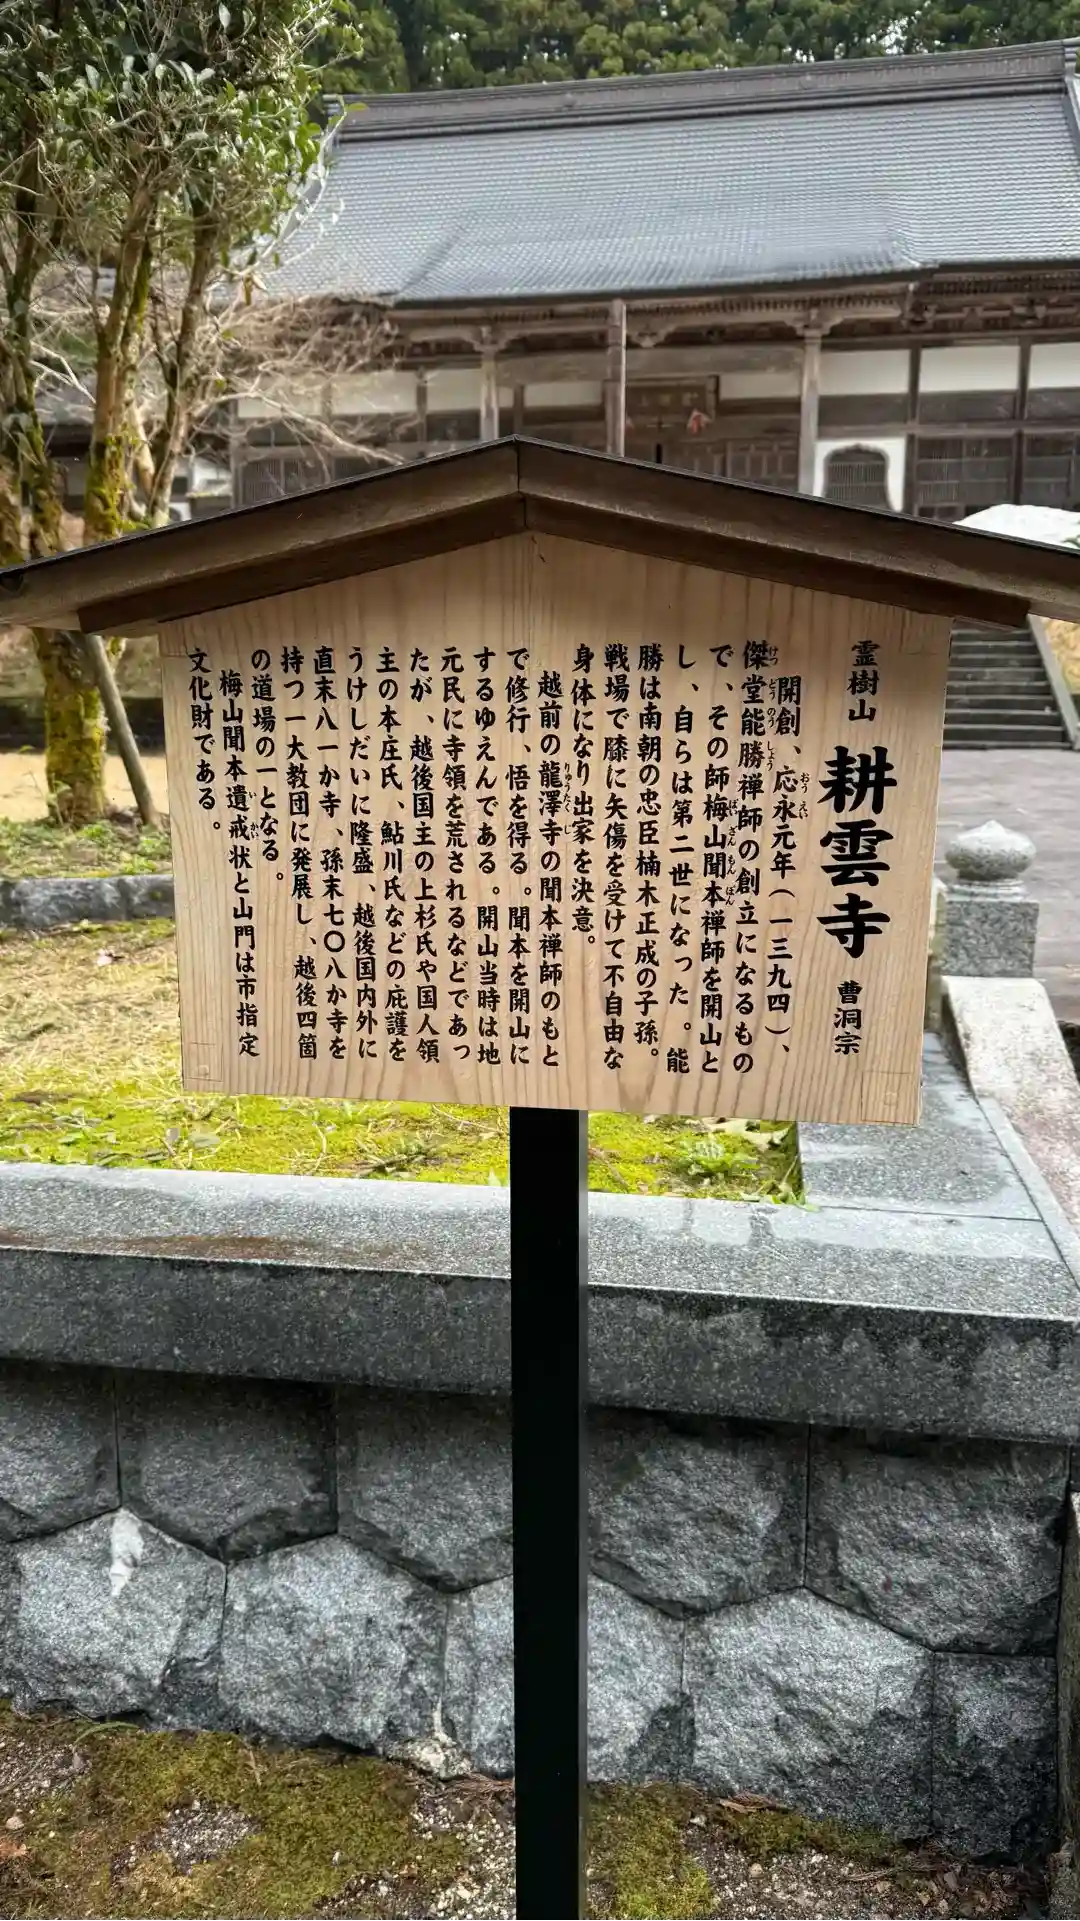 霊樹山 耕雲寺 曹洞宗
開創、応永元年（一三九四）、
傑堂能勝禅師の創立になるもの
で、その師梅山聞本禅師を開山と
し、自らは第二世になった。能
勝は南朝の忠臣楠木正成の子孫。
戦場で膝に矢傷を受けて不自由な
身体になり出家を決意。
越前の龍澤寺の聞本禅師のもと
で修行、悟を得る。聞本を開山に
するゆえんである。開山当時は地
元民に寺領を荒されるなどであっ
たが、越後国主の上杉氏や国人領
主の本庄氏、鮎川氏などの庇護を
うけしだいに隆盛、越後国内外に
直末八一か寺、孫末七〇八か寺を
持つ一大教団に発展し、越後四箇
の道場の一となる。
梅山聞本遺戒状と山門は市指定
文化財である。
おうえい
けつどうのうしょう
ばいざんもんぽん
りゅうたくじ
いかい